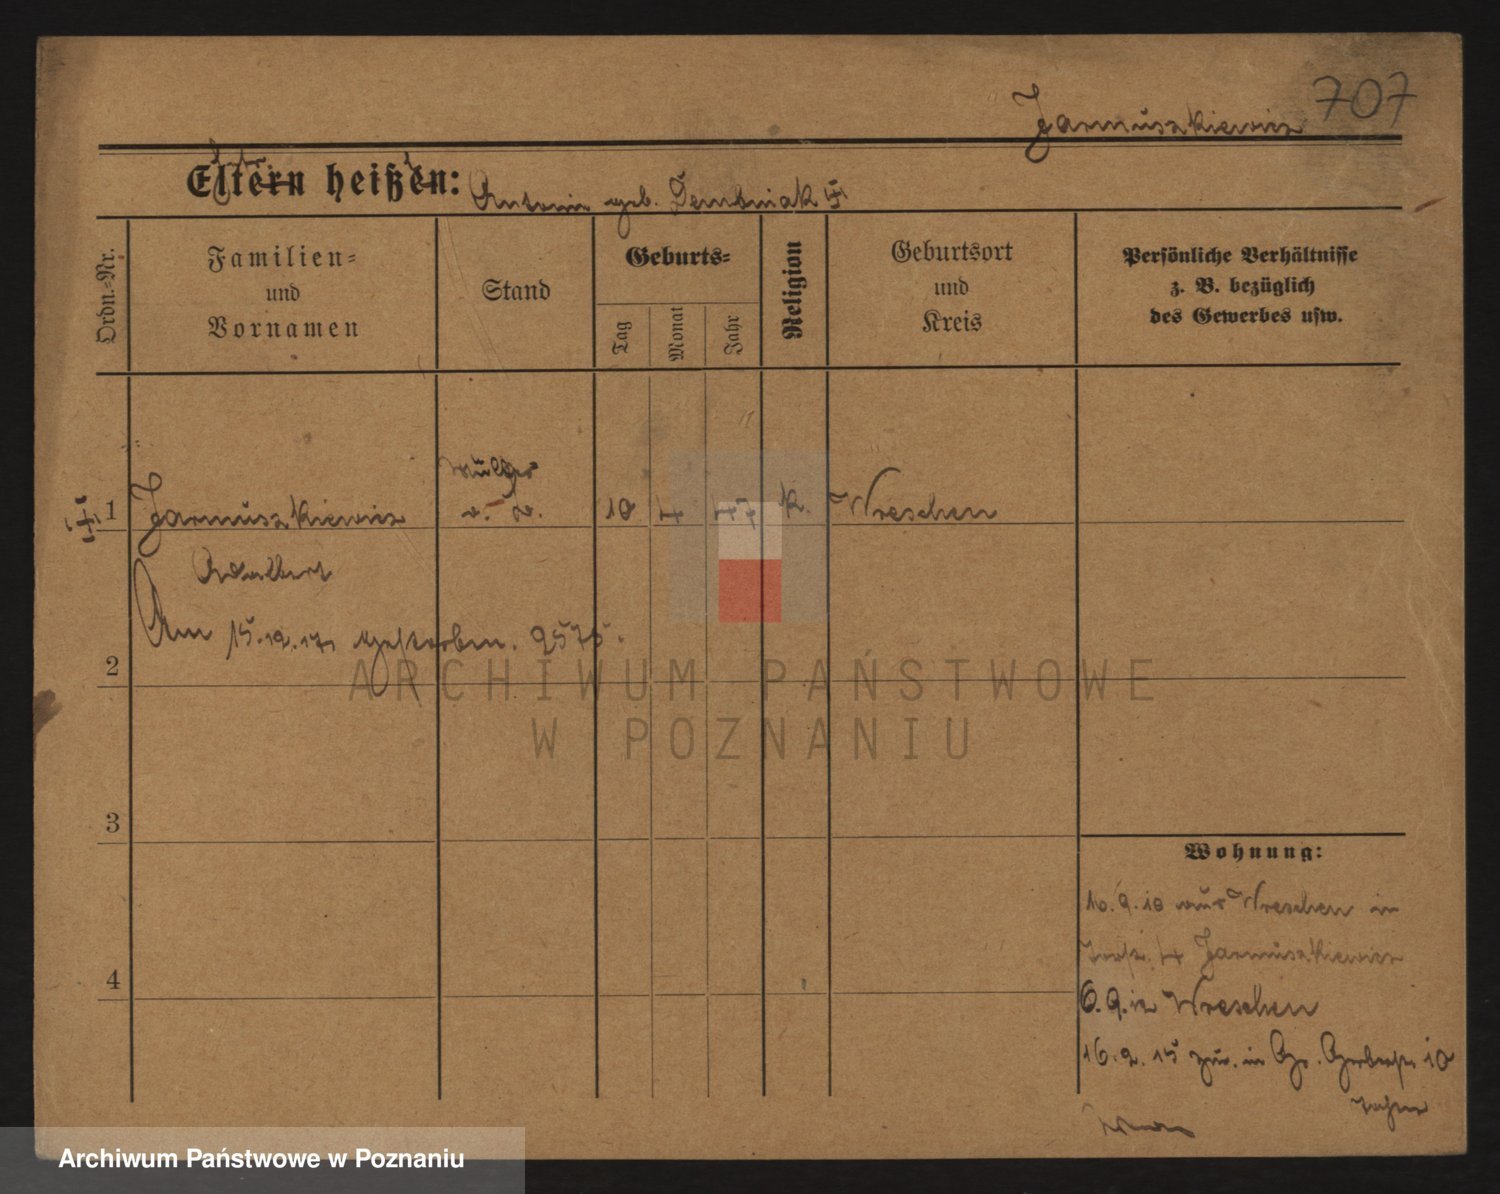 707
Jarmuszkiewicz
Eltern heißen: Antonie geb.
Ordn.-Nr.
Familien-
und
Vornamen
Stand
Geburts-
Tag
Monat
Jahr
Religion
Geburtsort
und
Kreis
Persönliche Verhältnisse
z. B. bezüglich
des Gewerbes usw.
1 Jarmuszkiewicz 10 4 47 k. Wreschen
Adalbert
Am 15.12.17 gestorben. 2575.
2
3
4
Wohnung:
10.9.10 aus Wreschen in
4 Jarmuszkiewicz
6.9.12 Wreschen
16.2.15 zur. in Gr. Gerberstr. 10
ARCHIWUM PAŃSTWOWE
W POZNANIU
Archiwum Państwowe w Poznaniu